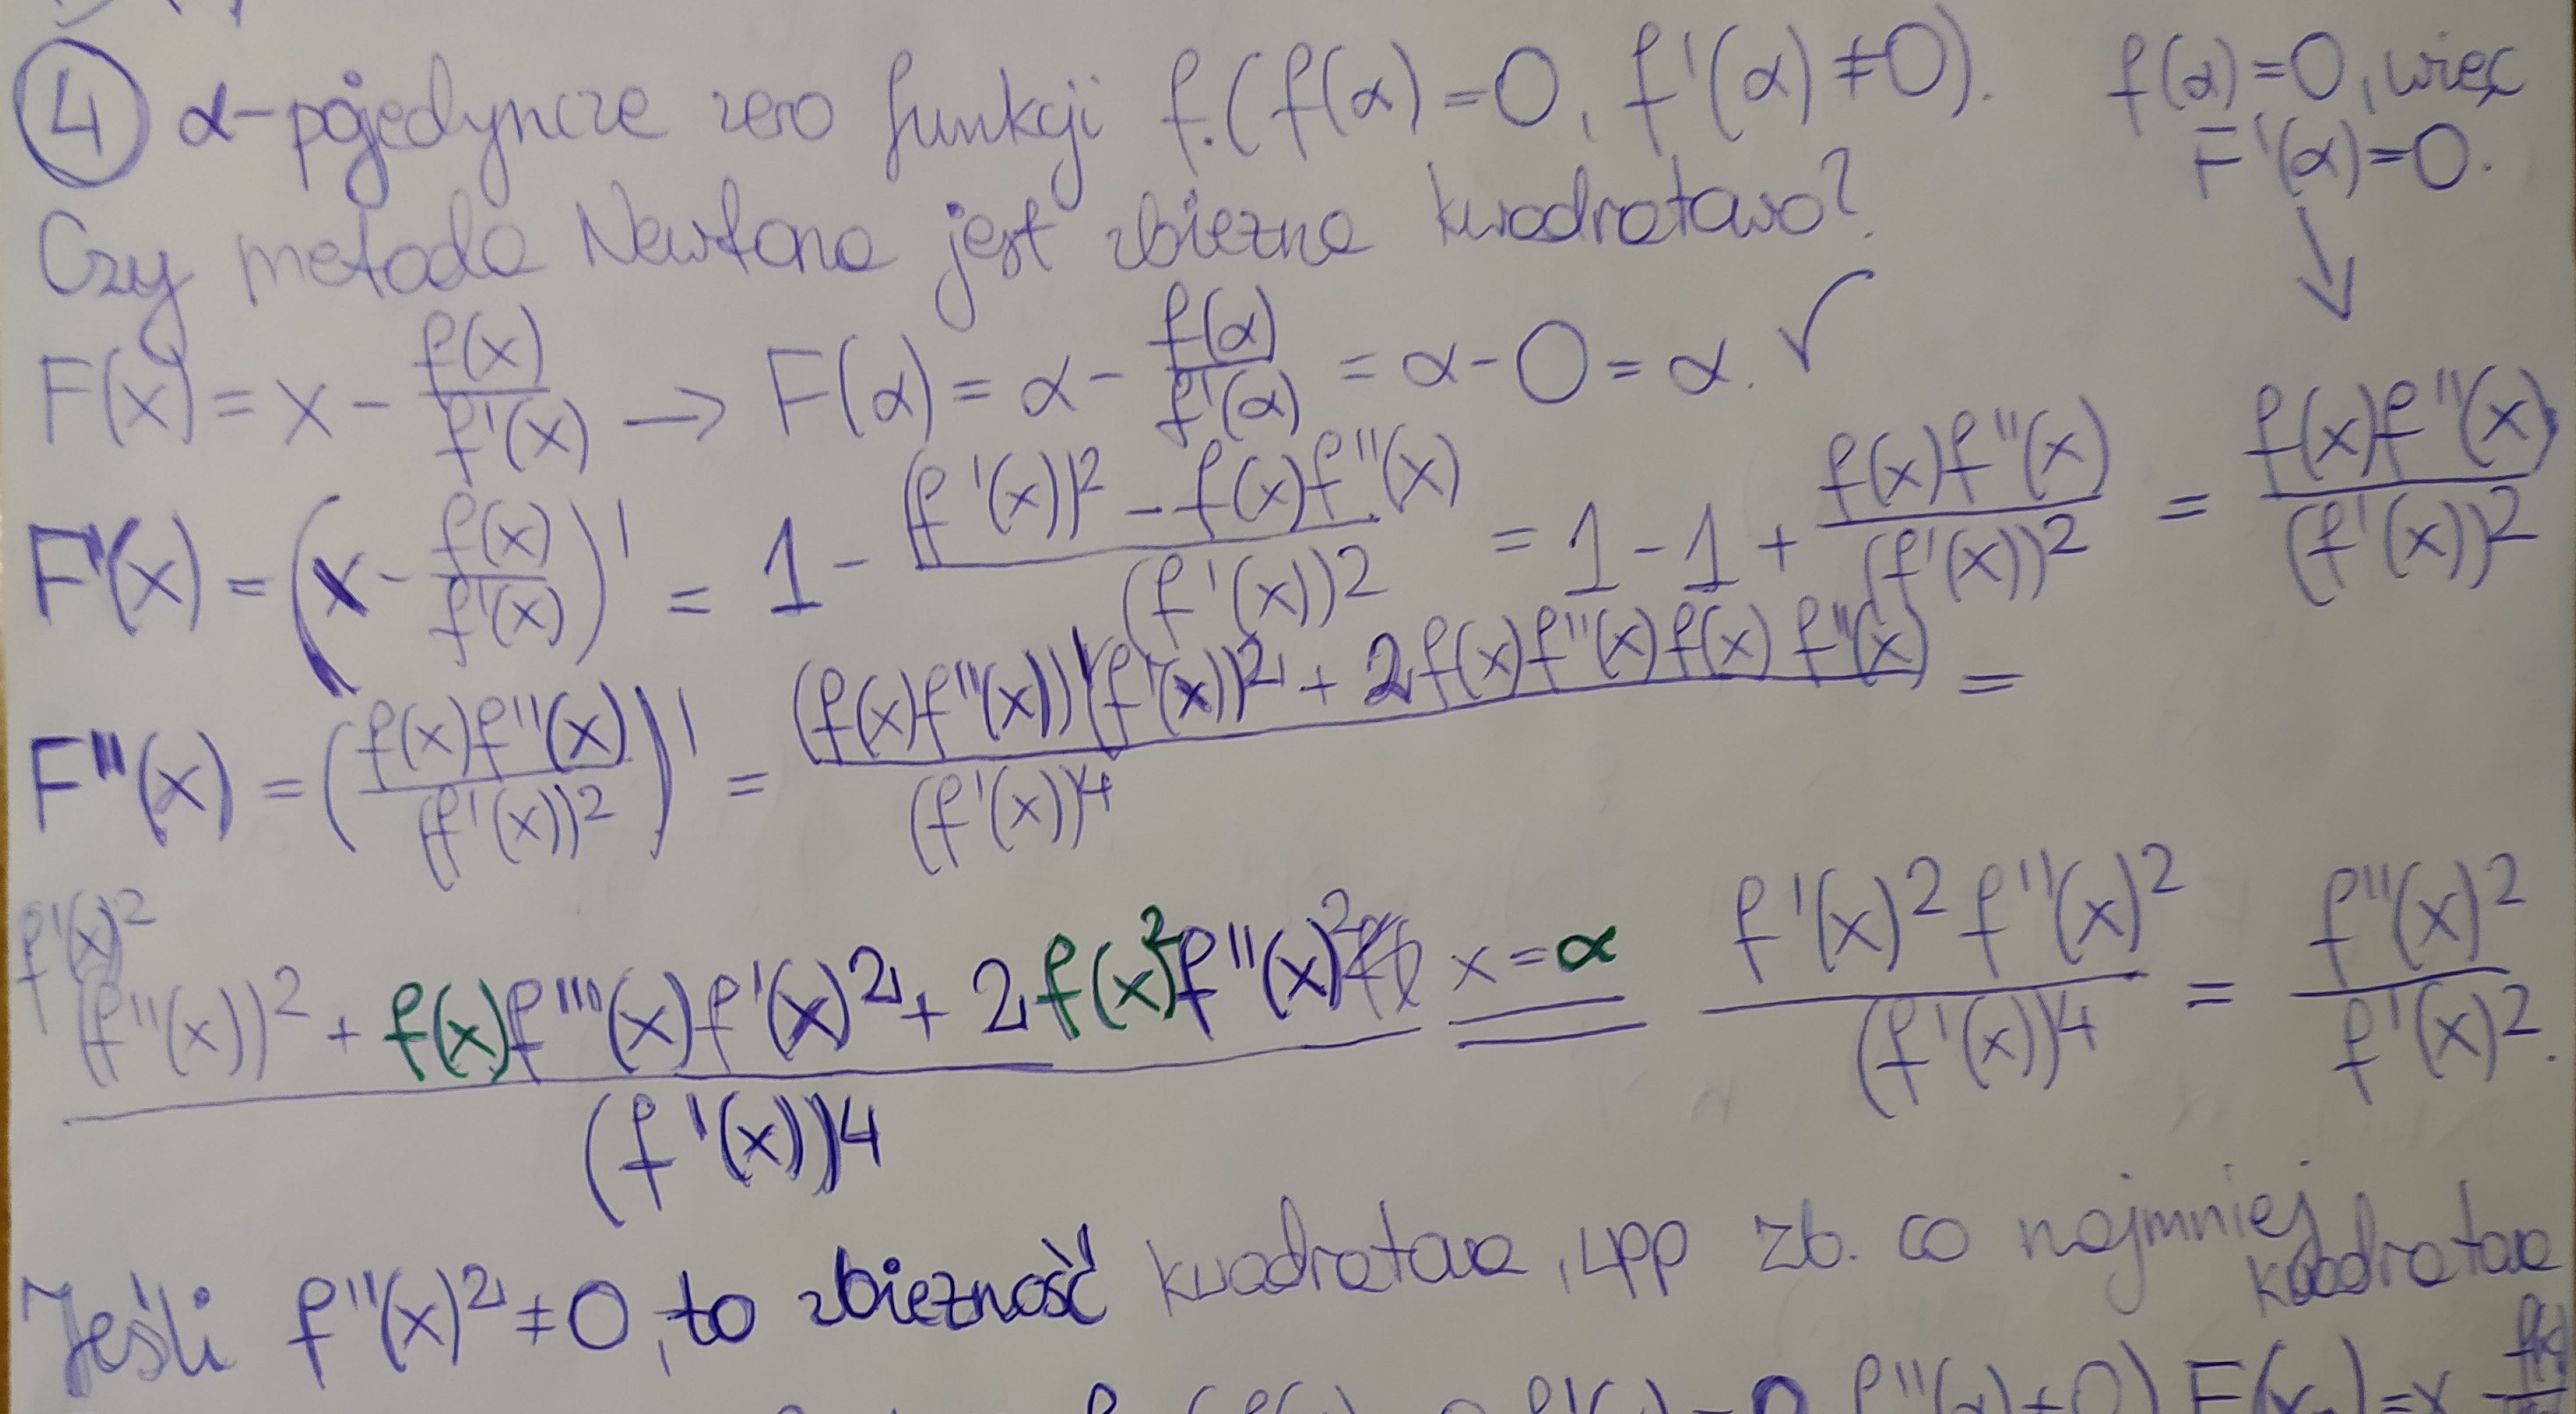 ④ α-pojedyncze zero funkcji f. (f(α)=0, f'(α)≠0).
f(α)=0, więc
F'(α)=0.
↓
Czy metoda Newtona jest zbieżna kwadratowo?
F(x) = x - f(x)/f'(x) → F(α) = α - f(α)/f'(α) = α - 0 = α. ✓
F'(x) = (x - f(x)/f'(x))' = 1 - ((f'(x))² - f(x)f''(x))/(f'(x))² = 1 - 1 + f(x)f''(x)/(f'(x))² = f(x)f''(x)/(f'(x))²
F''(x) = (f(x)f''(x)/(f'(x))²)' = ((f(x)f''(x))'(f'(x))² + 2f(x)f''(x)f(x)f''(x))/(f'(x))⁴ =
(f'(x)² (f''(x))² + f(x)f'''(x)f'(x)² + 2f(x)²f''(x)²)/(f'(x))⁴ x=α f'(x)²f''(x)²/(f'(x))⁴ = f''(x)²/f'(x)².
Jeśli f''(x)² ≠ 0, to zbieżność kwadratowa, wpp zb. co najmniej
kwadratowa